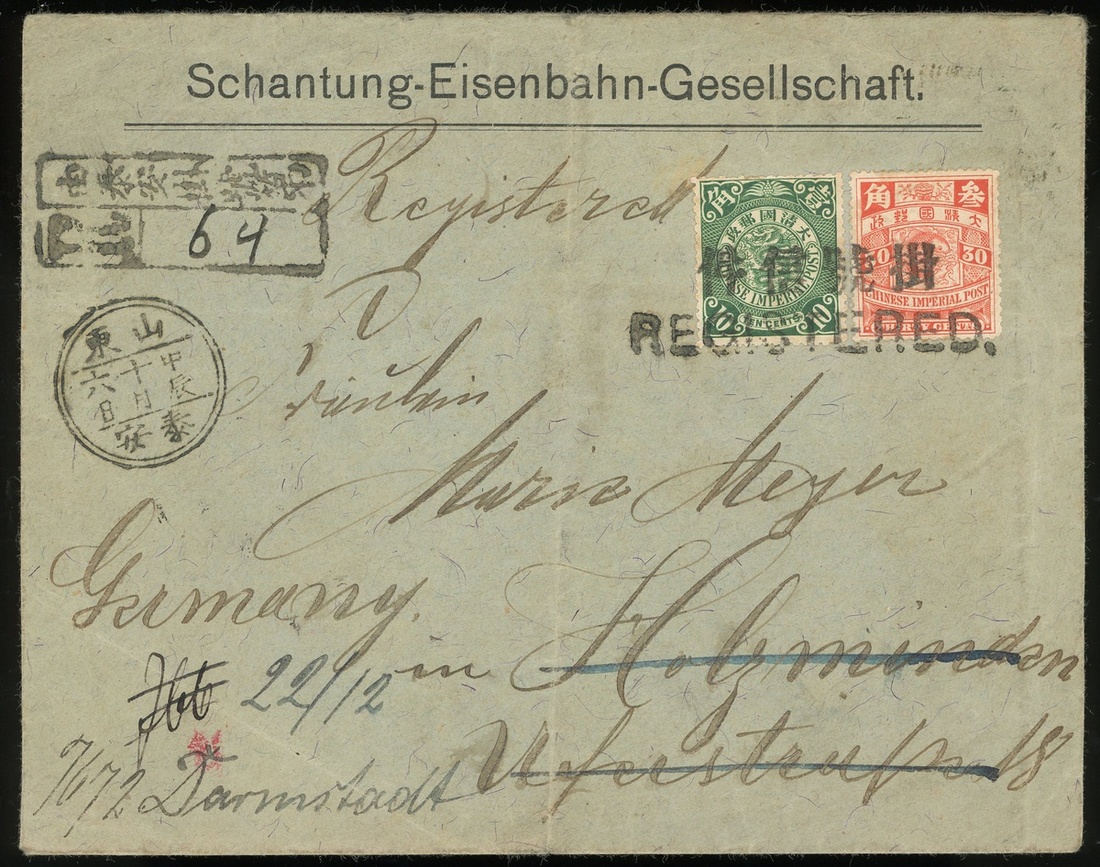 Schantung-Eisenbahn-Gesellschaft.
Registered
64
角 壹
大清國郵政
CHINESE IMPERIAL POST
10 TEN CENTS 10
角 叁
大清國郵政
30 30
CHINESE IMPERIAL POST
THIRTY CENTS
掛號信
REGISTERED.
山東
甲辰
十月
六日
泰安
Fräulein
Marie Meyer
Germany.
in Holzminden
22/12
Uferstraße 18
Darmstadt